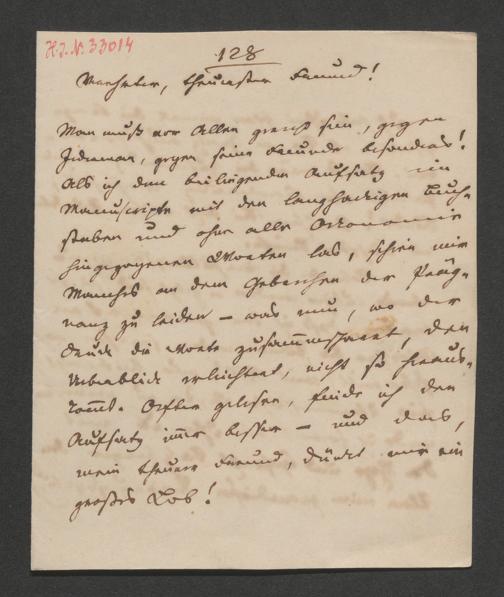 H. I. N. 33014
128
Verehrter, theuerster Freund!
Man muß vor Allem gerecht sein, gegen
Jedermann, gegen seine Freunde besonders!
Als ich den beiliegenden Aufsatz im
Manuscripte mit den langhackigen Buch-
staben und ohne alle Oekonomie
hingezogenen Worten las, schien mir
Manches an dem Gebrechen der Präg-
nanz zu leiden – was nun, wo der
Druck die Worte zusammendrängt, den
Ueberblick erleichtert, nicht so heraus-
kommt. Oefter gelesen, finde ich den
Aufsatz immer besser – und das,
mein theurer Freund, dünkt mir ein
großes Lob!